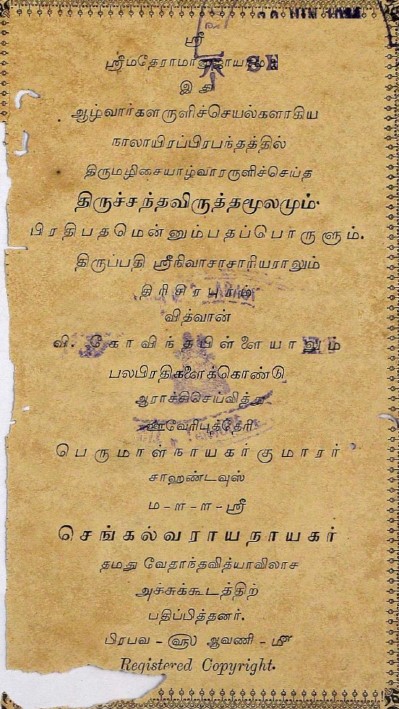 ஸ்ரீ
ஸ்ரீமதேராமாநுஜாயநம
இஃது
ஆழ்வார்களருளிச்செயல்களாகிய
நாலாயிரப்பிரபந்தத்தில்
திருமழிசையாழ்வாரருளிச்செய்த
திருச்சந்தவிருத்தமூலமும்
பிரதிபதமென்னும்பதப்பொருளும்.
திருப்பதி ஸ்ரீநிவாசாசாரியராலும்
திரிசிரபுரம்
வித்வான்
வி. கோவிந்தபிள்ளையாலும்
பலபிரதிகளைக்கொண்டு
ஆராச்சிசெய்வித்து
பெருமாள்நாயகர்குமாரர்
சாஹண்டவுஸ்
ம-ள-ள-ஸ்ரீ
செங்கல்வராயநாயகர்
தமது வேதாந்தவித்யாவிலாச
அச்சுக்கூடத்திற்
பதிப்பித்தனர்.
பிரபவ - ௵ ஆவணி - ௴
Registered Copyright.